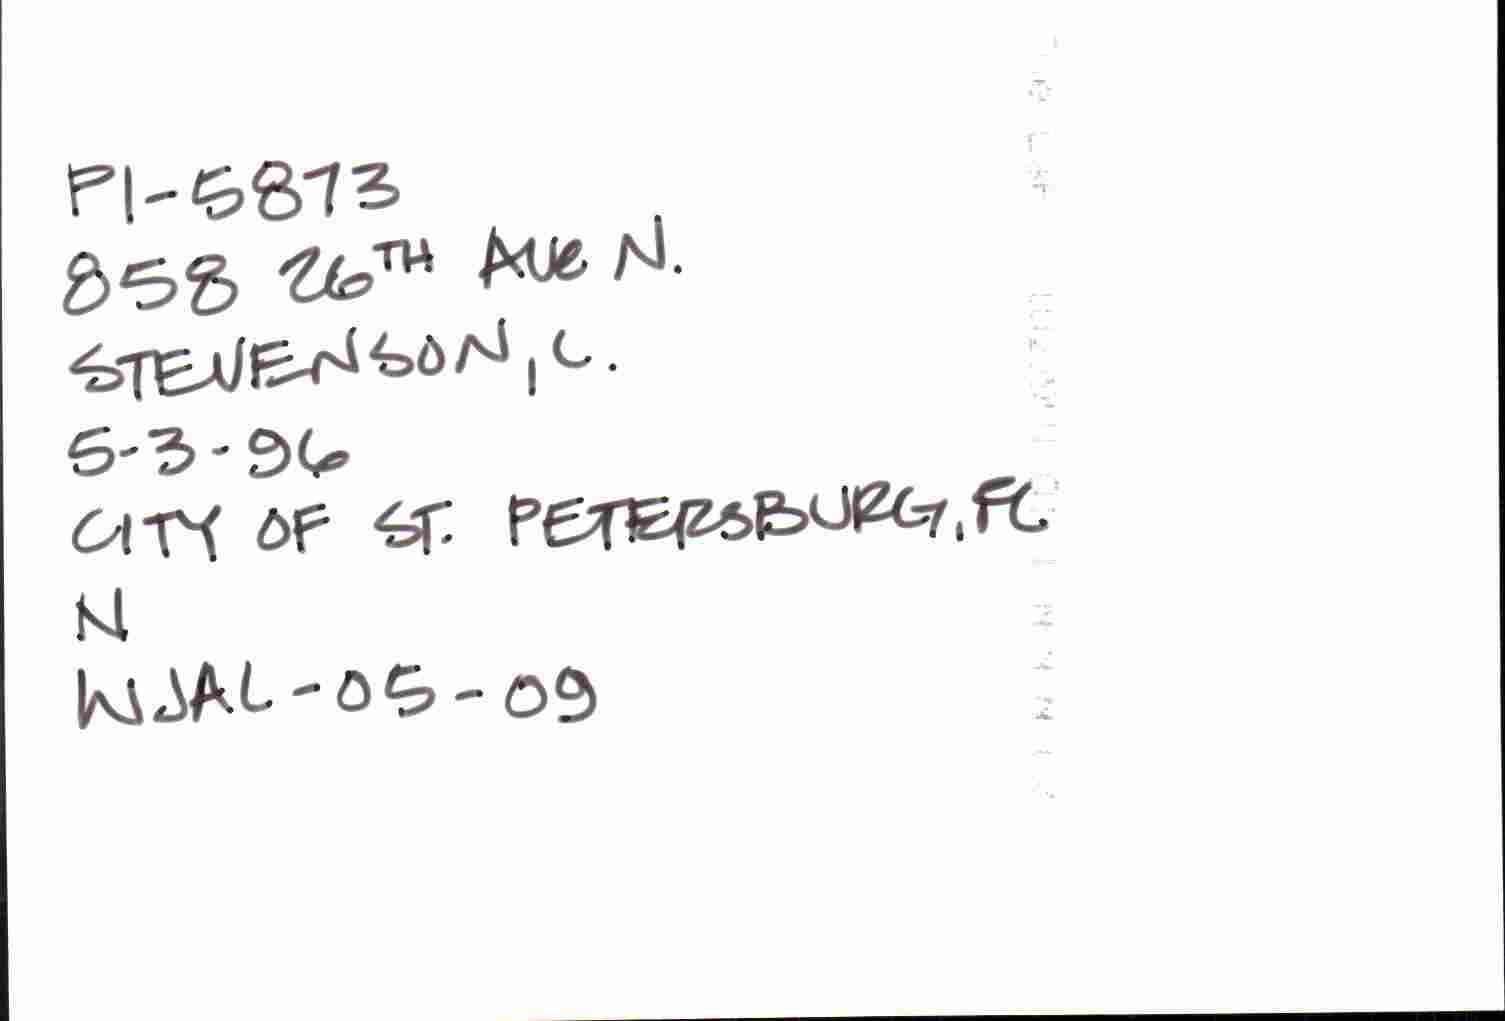 PI-5873
858 26TH Ave N.
STEVENSON, C.
5-3-96
CITY OF ST. PETERSBURG, FL
N
WJAL-05-09